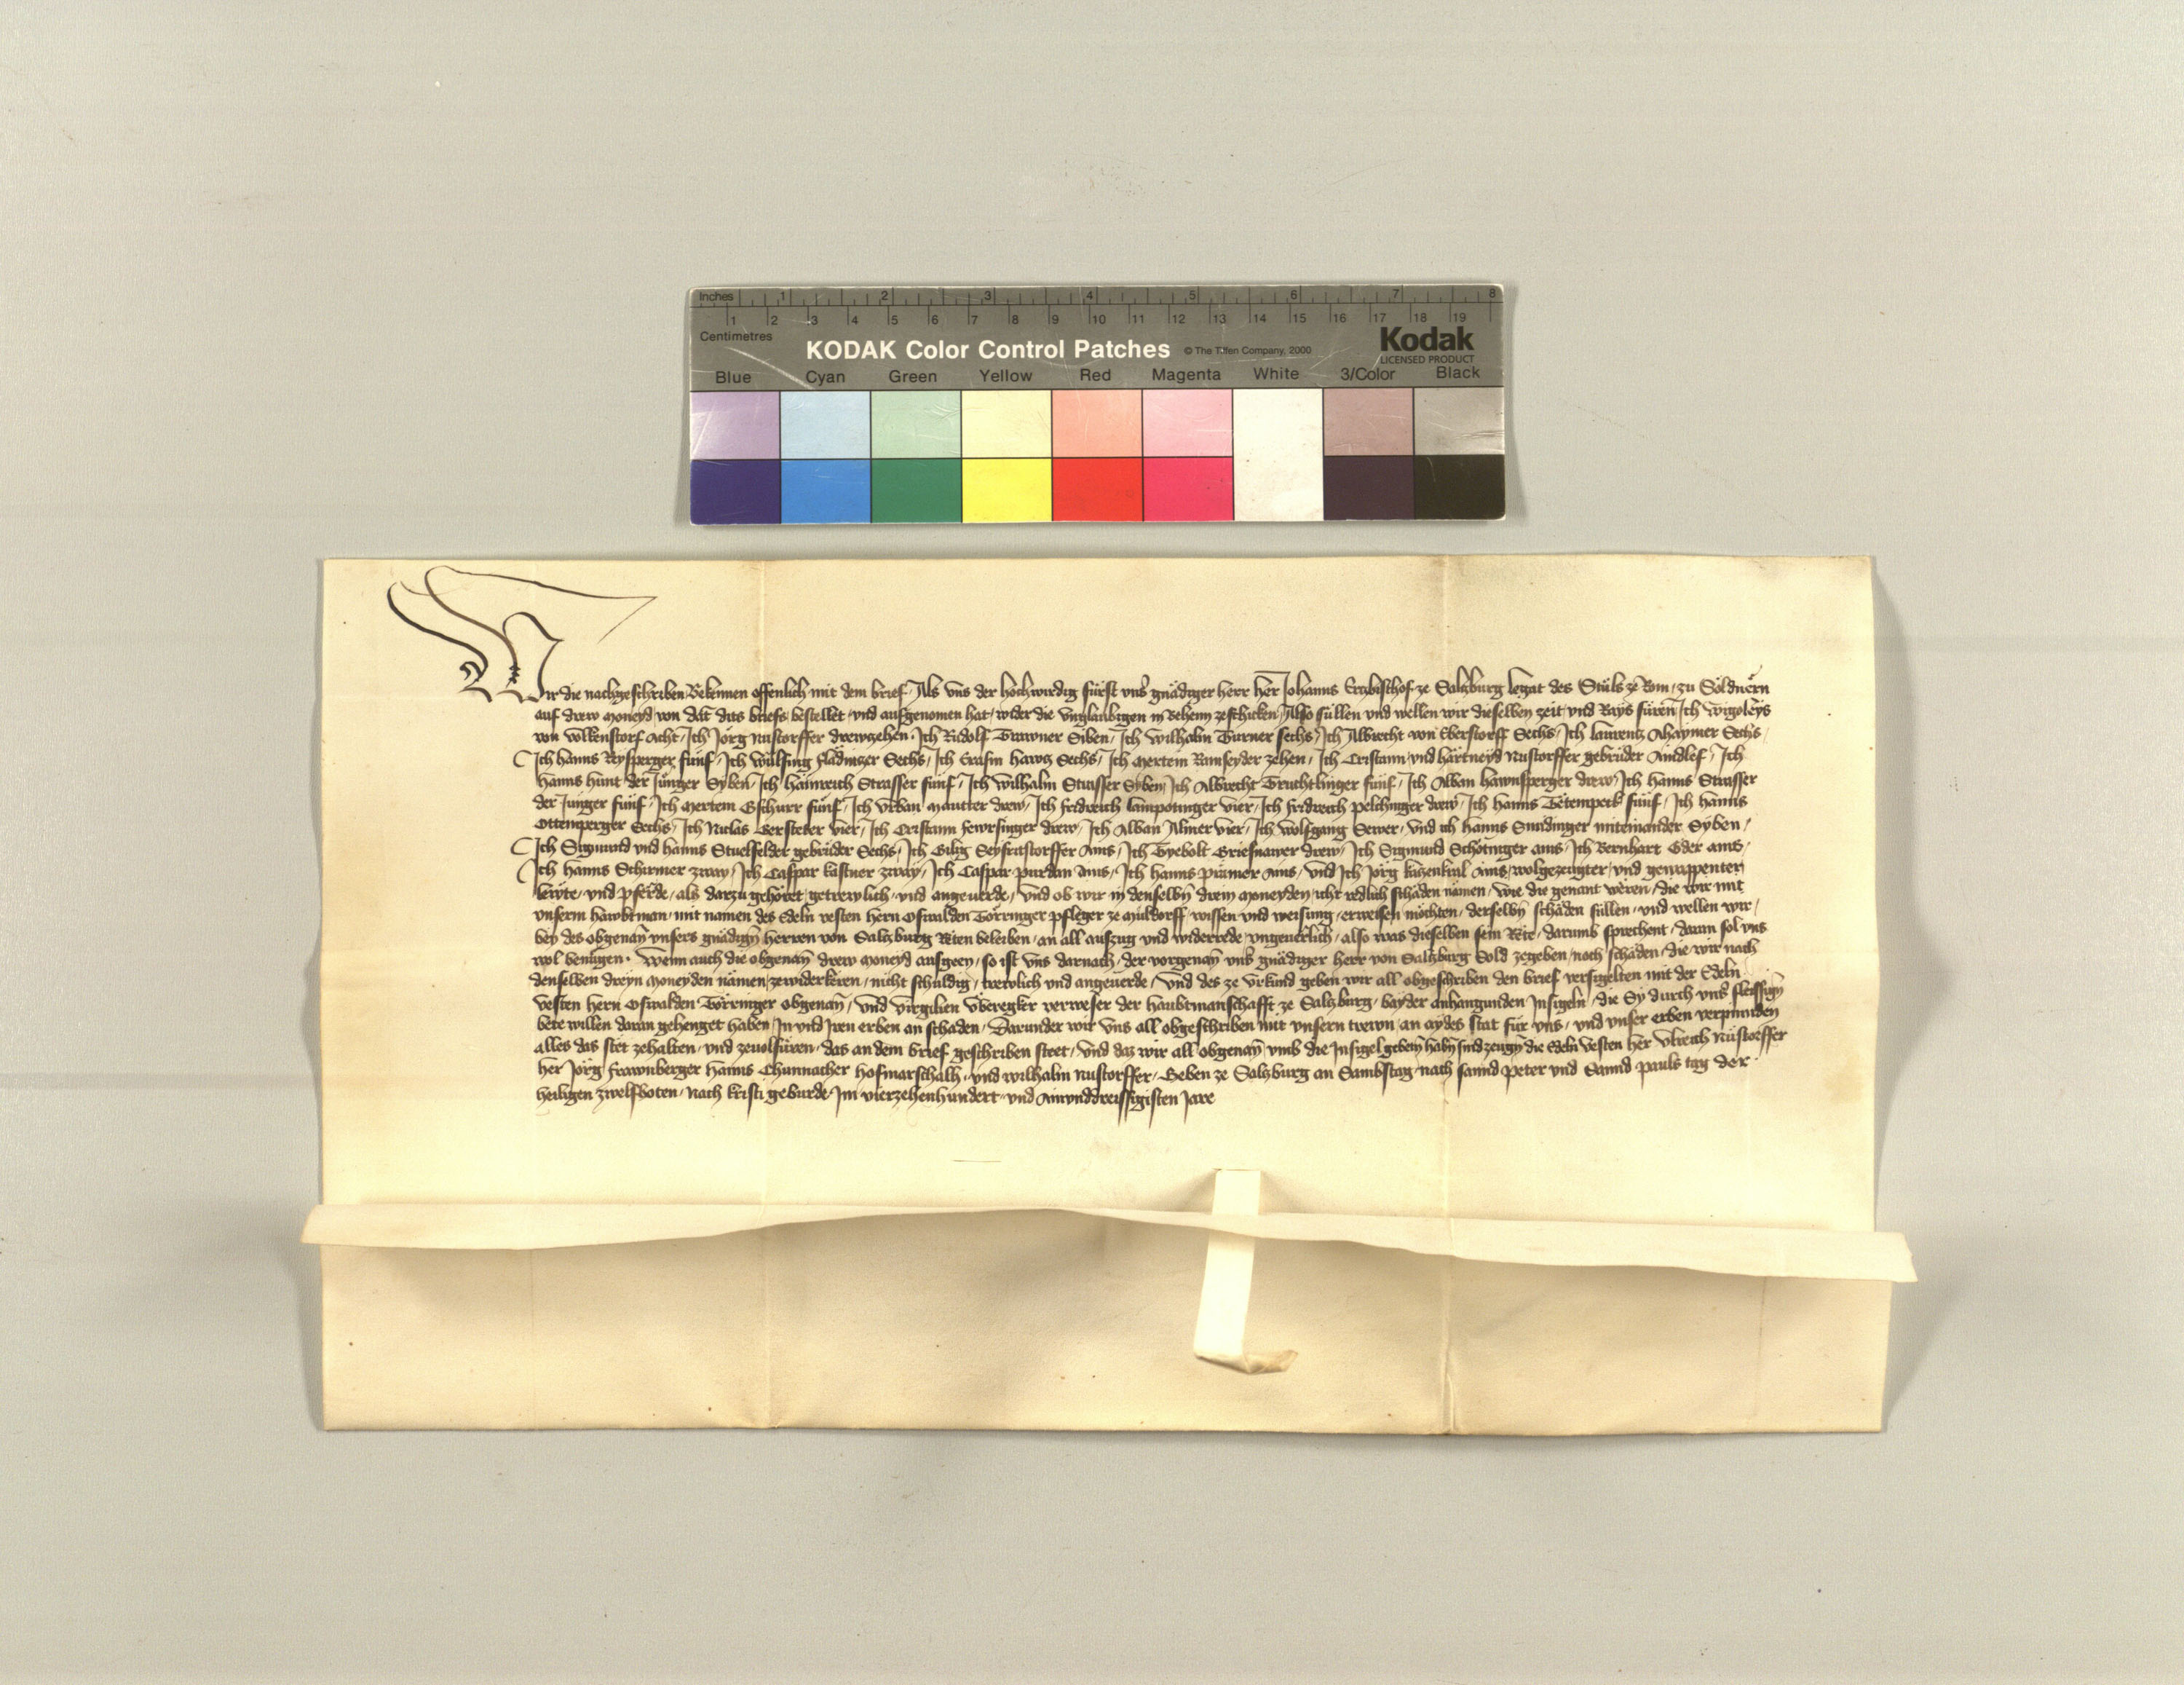 Inches 1 2 3 4 5 6 7 8
1 2 3 4 5 6 7 8 9 10 11 12 13 14 15 16 17 18 19
Centimetres
KODAK Color Control Patches © The Tiffen Company, 2000 Kodak
LICENSED PRODUCT
Blue Cyan Green Yellow Red Magenta White 3/Color Black
Wir die nachgeschriben Bekennen offenlich mit dem brief / Als vns der hochwirdig fürst vnser gnädiger herr her Johanns Erczbischof ze Salczburg legat des Stůls ze Rom / zu Söldnern
auf drew moneyd von dat ditz briefs bestellet vnd aufgenomen hat / wider die vnglaubigen in Behem zeschicken / Also süllen vnd wellen wir dieselben zeit vnd Rays füren / Ich Wigoleys
von Volkenstorf Acht / Ich Jörg Nustorffer drewzehen / Ich Rudolf Trawner Siben / Ich Wilhalm Turner sechs / Ich Albrecht von Eberstorff Sechs / Ich Laurentz Ahaymer Sechs /
Ich Hanns Reysperger fünf / Ich Wülfing Flädnitzer Sechs / Ich Erasm Hawg Sechs / Ich Mertein Ramseyder zehen / Ich Cristann vnd Hartneyd Nustorffer gebrüder Aindlef / Ich
Hanns Hunt der Jünger Syben / Ich Hainreich Strasser fünf / Ich Wilhalm Strasser Syben / Ich Albrecht Truchtlinger fünf / Ich Alban Hawnsperger drew / Ich Hanns Strasser
der Junger fünf / Ich Mertem Gschurr fünf / Ich Vrban Mautter drew / Ich Fridreich Lampotinger vier / Ich Fridreich Pelchinger drew / Ich Hanns Tetempeck fünf / Ich Hanns
Ottemperger Sechs / Ich Niclas Gersteter vier / Ich Cristann Hewrsinger drew / Ich Alban Almer vier / Ich Wolfgang Sewer / vnd ich Hanns miteinander Syben /
Ich Sigmund vnd Hanns Stuelfelder gebrüder Sechs / Ich Gilig Seyfristorffer Ains / Ich Tyebolt Griesnawer drew / Ich Sigmund Schötniger ains / Ich Bernhart Oder ains /
Ich Hanns Schirmer zway / Ich Caspar Kastner zway / Ich Caspar Purdan Ains / Ich Hanns Prämer Ains / vnd Ich Jörg Ains / wolgezeugter vnd gewappenter
Lewte / vnd pferde / als darzu gehöret getrewlich / vnd angeuerde / Vnd ob wir in denselbn drein moneyden icht redlich schäden nämen / wie die genant weren / die wir mit
vnserm haubtman / mit namen des Edeln vesten hern Oswalden Törringer pfleger ze Müldorff / wissen vnd weisung / erweisen möchten / derselbn schäden süllen / vnd wellen wir /
bey des obgenan vnsers gnädign herren von Salczburg Räten beleiben / an all auszug vnd widerrede vngeuerlich / also was dieselben sein Räte / darumb sprechent / daran sol vns
wol benügen . Wenn auch die obgenan drew moneyd ausgeen / so ist vns darnach / der vorgenan vnser gnädiger herr von Salczburg Sold zegeben / noch schäden / die wir nach
denselben dreyn moneyden nämen / zewiderkeren / nicht schuldig / trewlich vnd angeuerde / Vnd des ze vrkund geben wir all obgeschriben den brief versigelten mit der Edeln
Vesten hern Oswalden Törringer obgenan / vnd Virgilien Vberegker verweser der haubtmanschafft ze Salczburg / bayder anhangunden Insigeln / die Sy durch vnser fleissign
bete willen daran gehenget haben / In vnd Iren erben an schaden / Darunder wir vns all obgeschriben mit vnsern trewn / an aydes stat für vns / vnd vnser erben verpinnden
alles das stet zehalten / vnd zeuolfüren / das an dem brief geschriben steet / Vnd daz wir all obgenan vmb die Insigel gebeten habn sind zeugn die Edeln Vesten her Vlreich Nustorffer
her Jörg Frawnberger Hanns Chunnacher Hofmarschalh / vnd Wilhalm Nustorffer / Geben ze Salczburg an Sambstag nach sannd Peter vnd Sannd Pauls tag der
heiligen zwelfboten / nach kristi geburde / Im vierzehenhundert vnd ainvnddreissigisten Jare